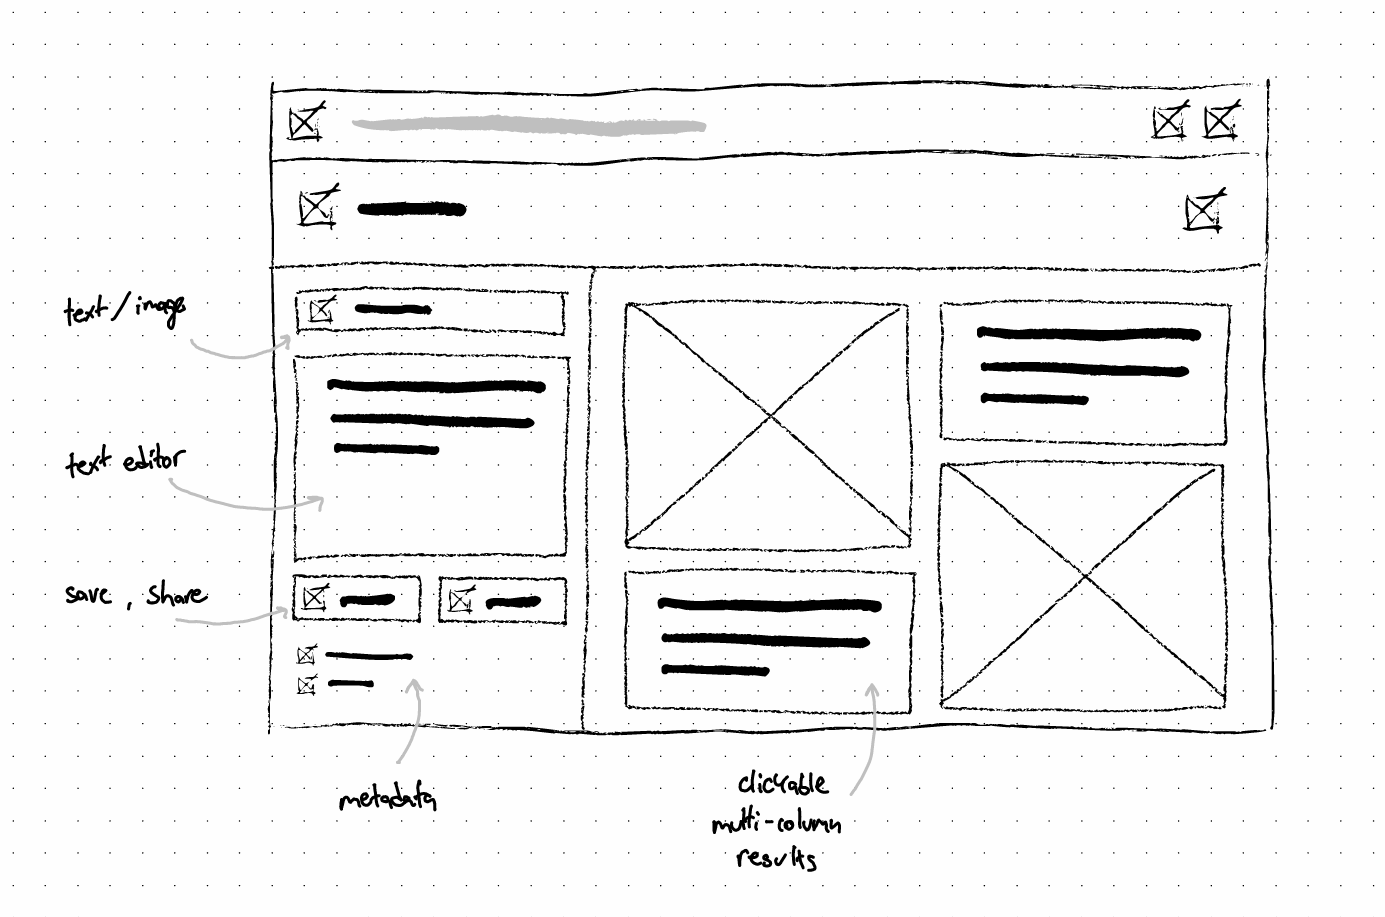 text / image
text editor
save , share
metadata
clickable
multi-column
results